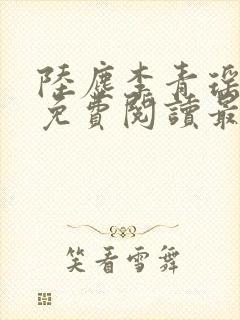 陸塵李青瑤
免費閱讀最
笑看雪舞